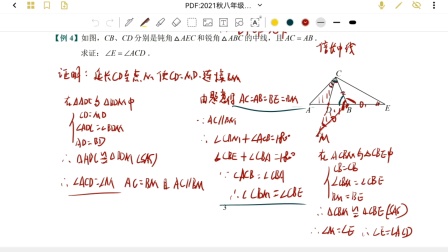 PDF:2021秋八年级...
【例 4】如图，CB、CD 分别是钝角△AEC 和锐角△ABC 的中线，且 AC＝AB．
求证：∠E＝∠ACD．
倍长中线
证明：延长CD至点M，使CD=MD，连接BM
在△ADC与△BDM中
CD=MD
∠ADC=∠BDM
AD=BD
∴△ADC≌△BDM (SAS)
∴∠ACD=∠M AC=BM 且 AC∥BM
由题意得 AC=AB=BE=BM
∵AC∥BM
∴∠CBM+∠ACB=180°
∠CBE+∠CBA=180°
∵∠ACB=∠CBA
∴∠CBM=∠CBE
C
A
D
B
E
M
在△CBM与△CBE中
CB=CB
∠CBM=∠CBE
BM=BE
∴△CBM≌△CBE(SAS)
∴∠M=∠E ∴∠E=∠ACD